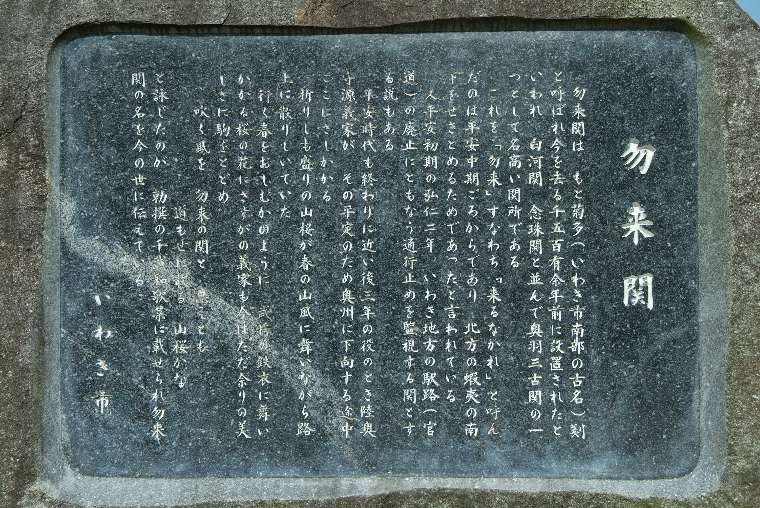 勿来関
勿来関は もと菊多(いわき市南部の古名)剗
と呼ばれ今を去る千五百有余年前に設置されたと
いわれ 白河関 念珠関と並んで奥羽三古関の一
つとして名高い関所である
これを「勿来」すなわち「来るなかれ」と呼ん
だのは平安中期ごろからであり 北方の蝦夷の南
下をせきとめるためであったと言われている
又平安初期の弘仁二年 いわき地方の駅路(官
道)の廃止にともなう通行止めを監視する関とす
る説もある
平安時代も終わりに近い後三年の役のとき陸奥
守源義家が その平定のため奥州に下向する途中
ここにさしかかる
折りしも盛りの山桜が春の山風に舞いながら路
上に散りしいていた
行く春をおしむかのように 武将の鉄衣に舞い
かかる桜の花にさすがの義家も今はただ余りの美
しさに駒をとどめ
吹く風を 勿来の関と 思へども
道もせにちる 山桜かな
と詠じたのが 勅撰の千載和歌集に載せられ勿来
関の名を今の世に伝えている
いわき市